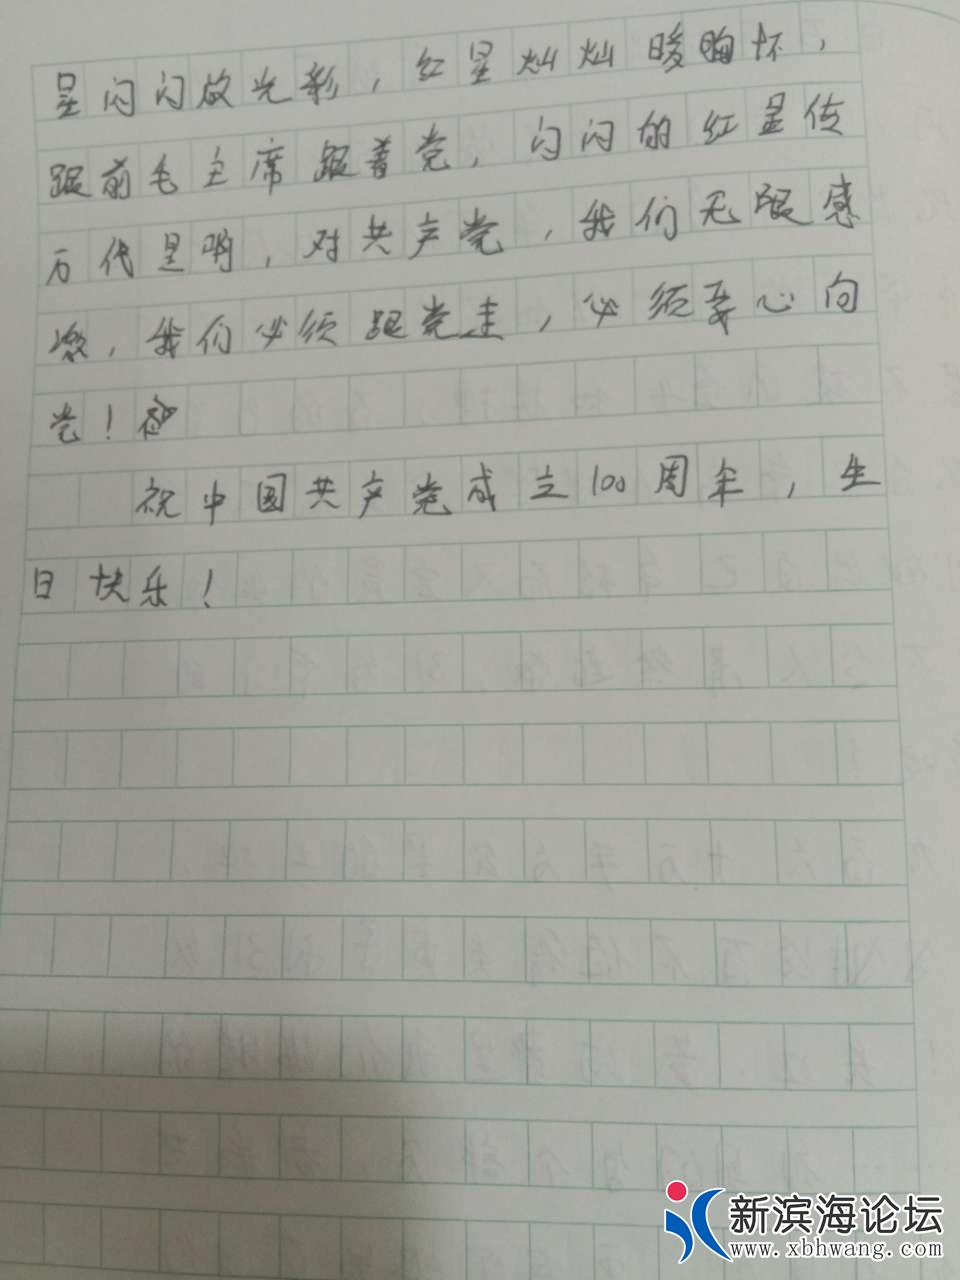 星闪闪放光彩，红星灿灿暖胸怀，
跟前毛主席跟着党，闪闪的红星传
万代是啊，对共产党，我们无限感
激，我们必须跟党走，必须要心向
党！
祝中国共产党成立100周年，生
日快乐！
新滨海论坛
www.xbhwang.com